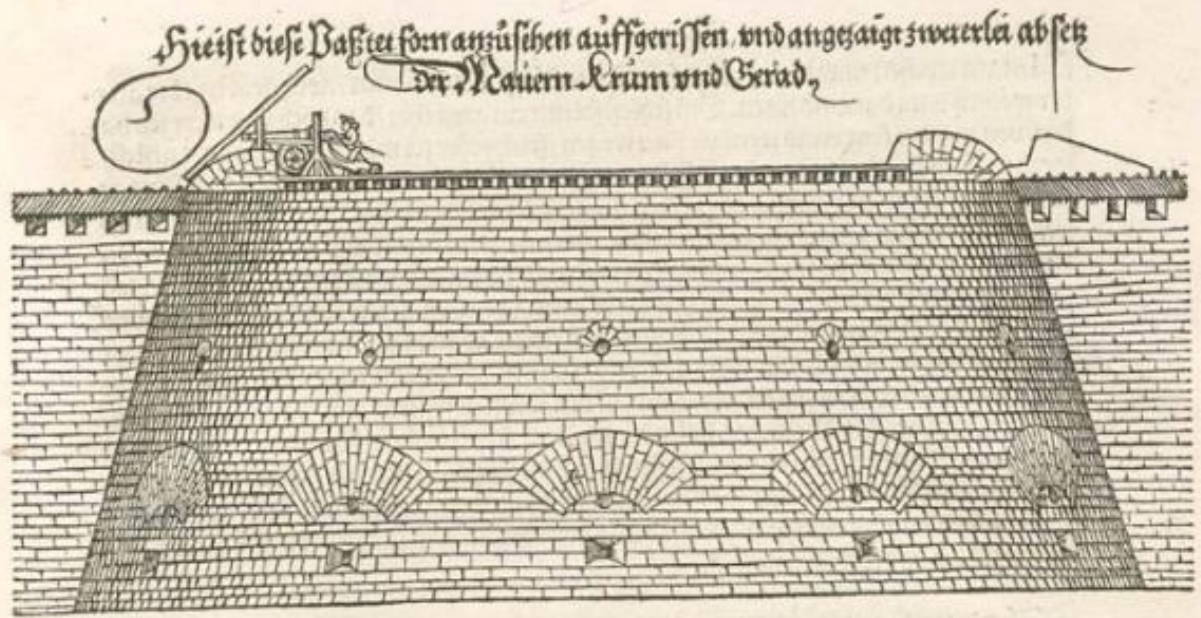 Hie ist diese Pasteẏ forn anzůsehen aůffgerissen, vnd angezaigt zweierleẏ absetz
der Maůern Krum vnd Gerad.